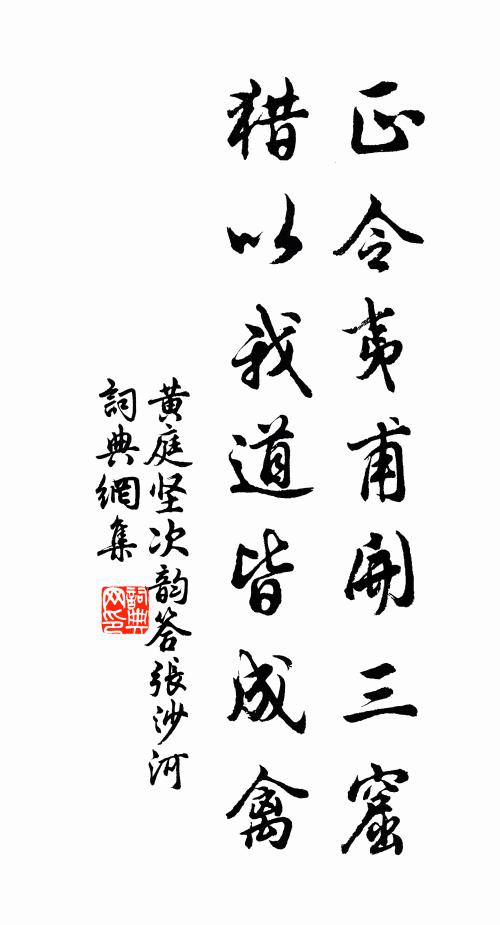 正令夷甫開三窟
猎以我道皆成禽
黄庭坚次韵荅張沙河
詞典網集
詞典网印